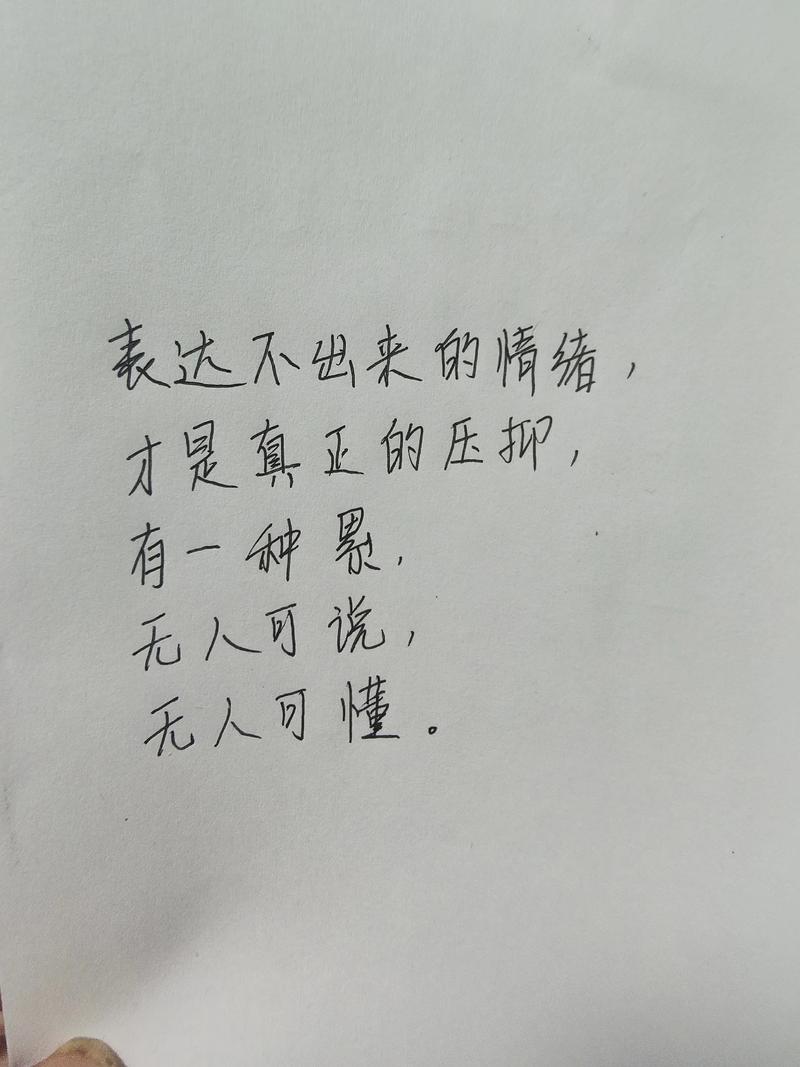 表达不出来的情绪，
才是真正的压抑，
有一种累，
无人可说，
无人可懂。